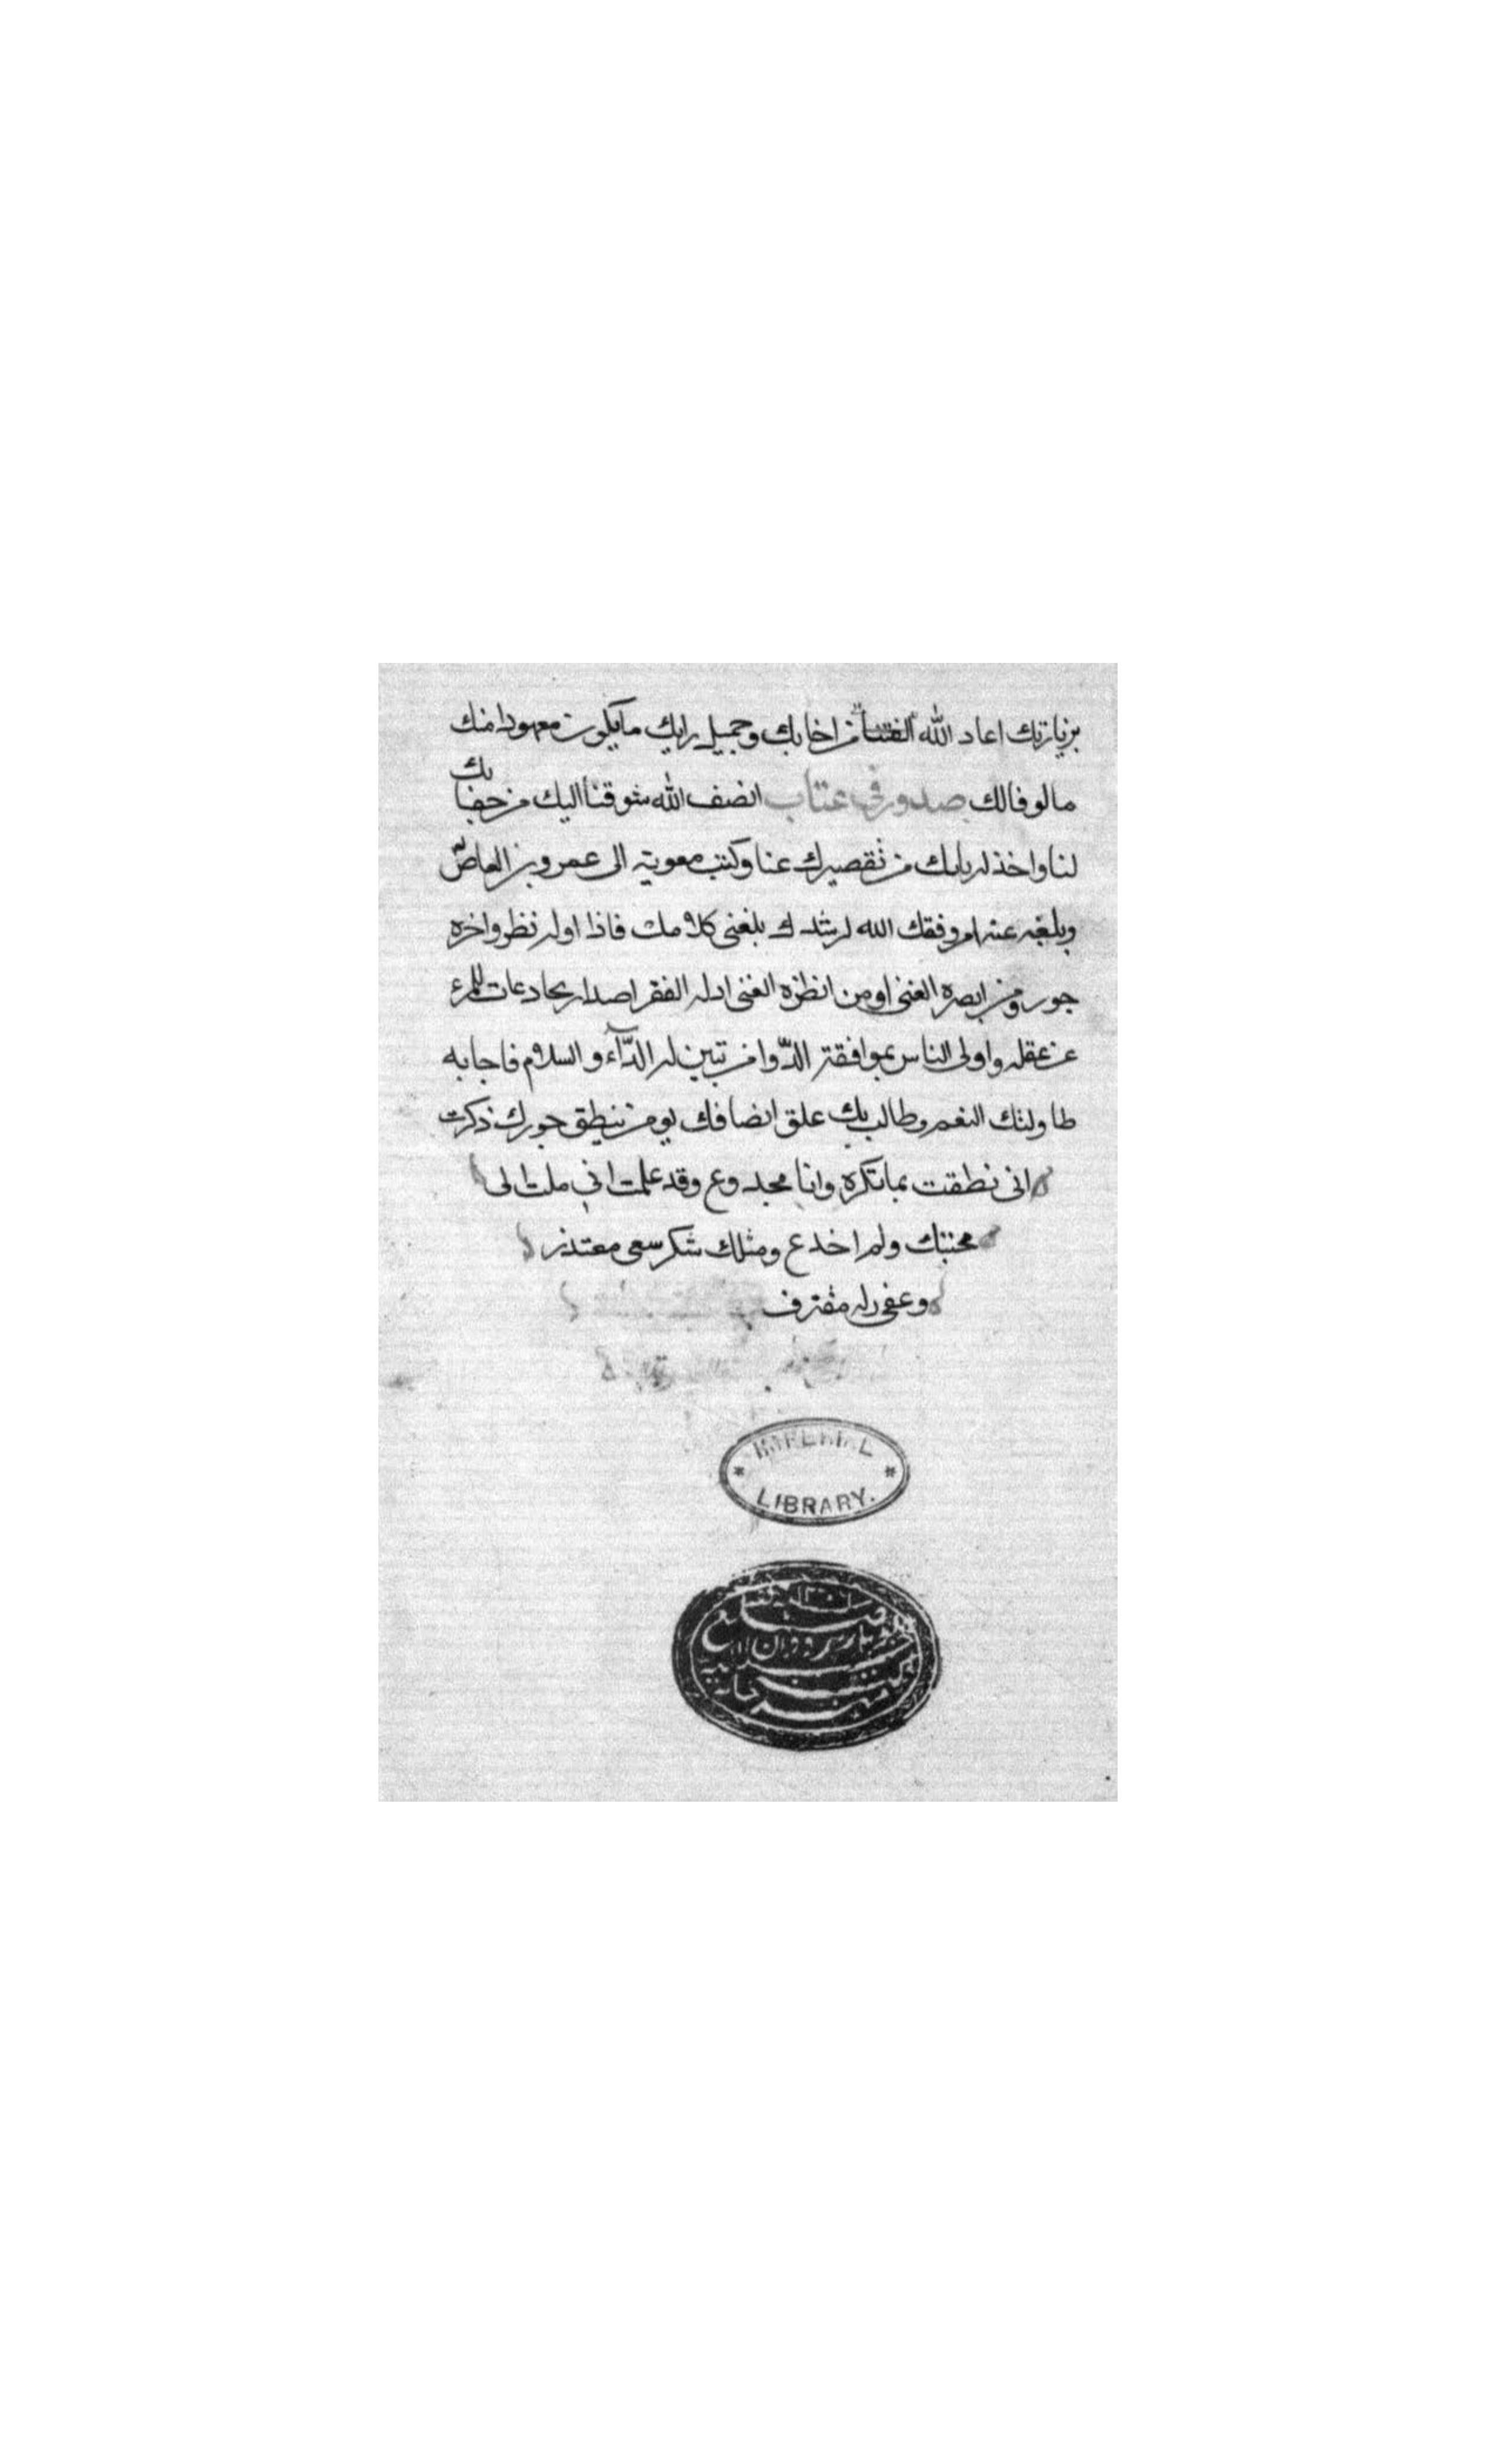 بزيارتك اعاد الله الفتنا من اخايك وجميل رايك ما يكون معهودا منك
مالوفا لك صدور في عتاب انصف الله شوقنا اليك من جفايك
لنا واخذ لر بابك من تقصيرك عنا وكتب معوية الى عمرو بن العاص
وبلغه عنه امر وفقك الله لرشدك بلغنى كلامك فاذا اوله نظر واخره
جور ومن ابصره الغنى او من انظره الغنى ادله الفقر اصدار بحادعات للمرء
عن عقله واولى الناس بموافقة الدوا من تبين له الداء والسلام فاجابه
طاولتك النعم وطالب بك علق انصافك يومن ينطق جورك ذكرت
انى نطقت بما تكره وانا مجدوع وقد علمت انى ملت الى
محبتك ولم اخدع ومثلك شكر سعى معتذر
وعفى زله مقترف
IMPERIAL
LIBRARY.